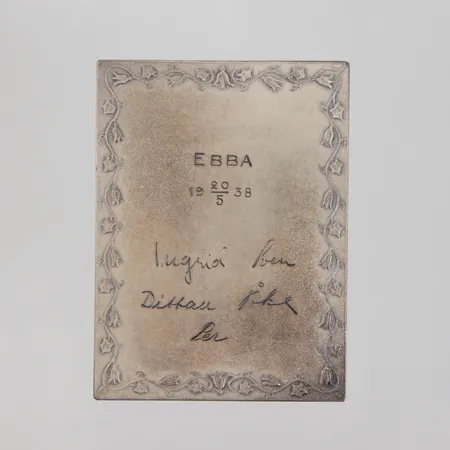 EBBA
19 20/5 38
Ingrid Sven
Dittan Åke
Per